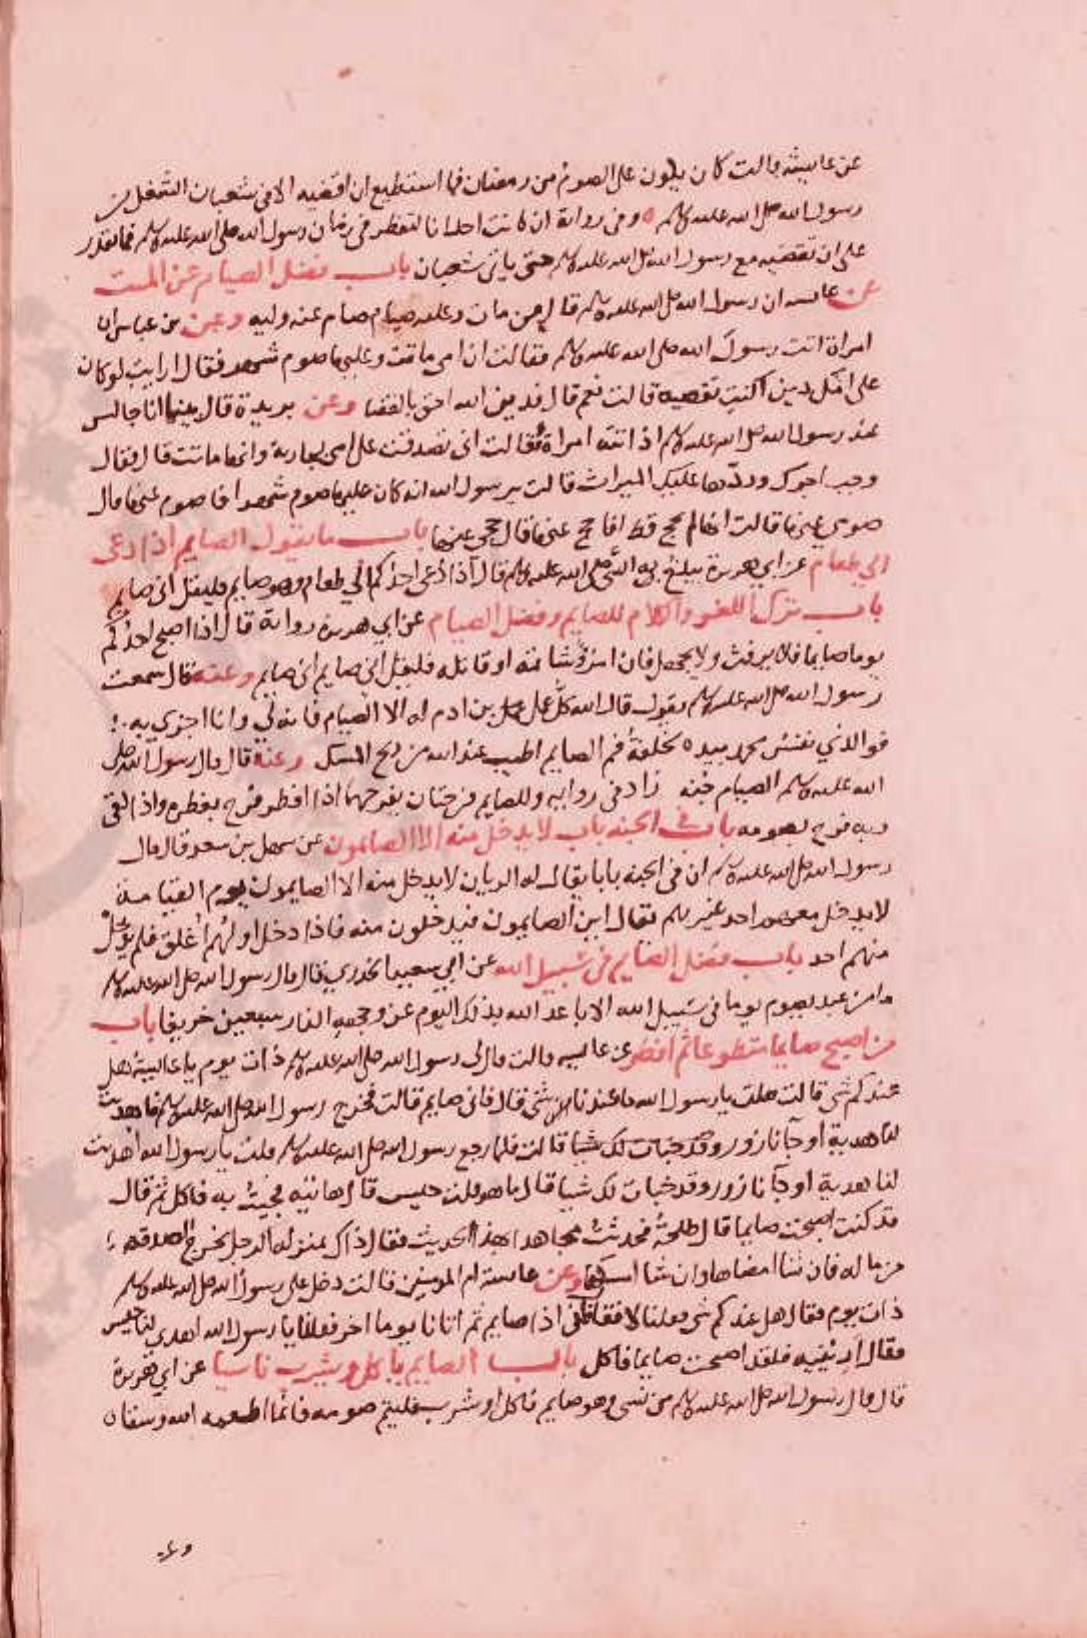 عن عايشه قالت كان يكون على الصوم من رمضان فما استطيع ان اقضيه الا في شعبان الشغل من
رسول الله صلى الله عليه وسلم ٥ وفي رواية ان كانت احدانا لتفطر في زمان رسول الله صلى الله عليه وسلم فما تقدر
على ان تقضيه مع رسول الله صلى الله عليه وسلم حتى ياتي شعبان باب فضل الصيام عن الميت
عن عايشه ان رسول الله صلى الله عليه وسلم قال من مات وعليه صيام صام عنه وليه وعن بن عباس ان
امراة اتت رسول الله صلى الله عليه وسلم فقالت ان امى ماتت وعليها صوم شهر فقال ارايت لو كان
على امك دين اكنت تقضيه قالت نعم قال فدين الله احق بالقضا وعن بريدة قال بينا انا جالس
عند رسول الله صلى الله عليه وسلم اذ اتته امراة فقالت انى تصدقت على امى بجارية وانها ماتت قال فقال
وجب اجرك وردها عليك الميراث قالت يرسول الله انه كان عليها صوم شهر افاصوم عنها قال
صومي عنها قالت انها لم تحج قط افاحج عنها قال حجى عنها باب ما يقول الصايم اذا دعى
الى طعام عن ابي هريرة يبلغ به النبي صلى الله عليه وسلم قال اذا دعى احدكم الى طعام وهو صايم فليقل انى صايم
باب ترك اللغو والكلام للصايم وفضل الصيام عن ابي هريرة رواية قال اذا اصبح احدكم
يوما صايما فلا يرفث ولا يجهل فان امرؤ شاتمه او قاتله فليقل انى صايم انى صايم وعنه قال سمعت
رسول الله صلى الله عليه وسلم يقول قال الله كل عمل بن ادم له الا الصيام فانه لي وانا اجزي به
فوالذي نفس محمد بيده لخلفة فم الصايم اطيب عند الله من ريح المسك وعنه قال قال رسول الله صلى
الله عليه وسلم الصيام جنه زاد في روايه وللصايم فرحتان يفرحهما اذا افطر فرح بفطره واذا لقى
ربه فرح بصومه باب في الجنه باب لا يدخل منه الا الصايمون عن سهل بن سعد قال قال
رسول الله صلى الله عليه وسلم ان في الجنه بابا يقال له الريان لا يدخل منه الا الصايمون يوم القيامة
لا يدخل معهم احد غيرهم يقال اين الصايمون فيدخلون منه فاذا دخل اولهم اغلق فلم يدخل
منهم احد باب فضل الصايم في سبيل الله عن ابي سعيد الخدري قال قال رسول الله صلى الله عليه وسلم
ما من عبد يصوم يوما في سبيل الله الا باعد الله بذلك اليوم عن وجهه النار سبعين خريفا باب
من اصبح صايما متطوعا ثم افطر عن عايشه قالت قال لى رسول الله صلى الله عليه وسلم ذات يوم يا عايشة هل
عندكم شي قالت قلت يا رسول الله ما عندنا من شي قال فاني صايم قالت فخرج رسول الله صلى الله عليه وسلم فاهديت
لنا هدية او جآنا زور وقد خبات لك شيا قالت فلما رجع رسول الله صلى الله عليه وسلم قلت يا رسول الله اهديت
لنا هدية او جآنا زور وقد خبات لك شيا قال ما هو قلت حيس قال هاتيه فجيت به فاكل ثم قال
قد كنت اصبحت صايما قال طلحة فحدثت مجاهدا بهذا الحديث فقال ذاك بمنزله الرجل يخرج الصدقه
من ماله فان شا امضاها وان شا امسكها وعن عايشه ام المومنين قالت دخل على رسول الله صلى الله عليه وسلم
ذات يوم فقال هل عندكم شي فقلنا لا فقال فاني اذا صايم ثم اتانا يوما اخر فقلنا يا رسول الله اهدى لنا حيس
فقال ادنيه فلقد اصبحت صايما فاكل باب الصايم ياكل ويشرب ناسيا عن ابي هريرة
قال قال رسول الله صلى الله عليه وسلم من نسى وهو صايم فاكل او شرب فليتم صومه فانما اطعمه الله وسقاه